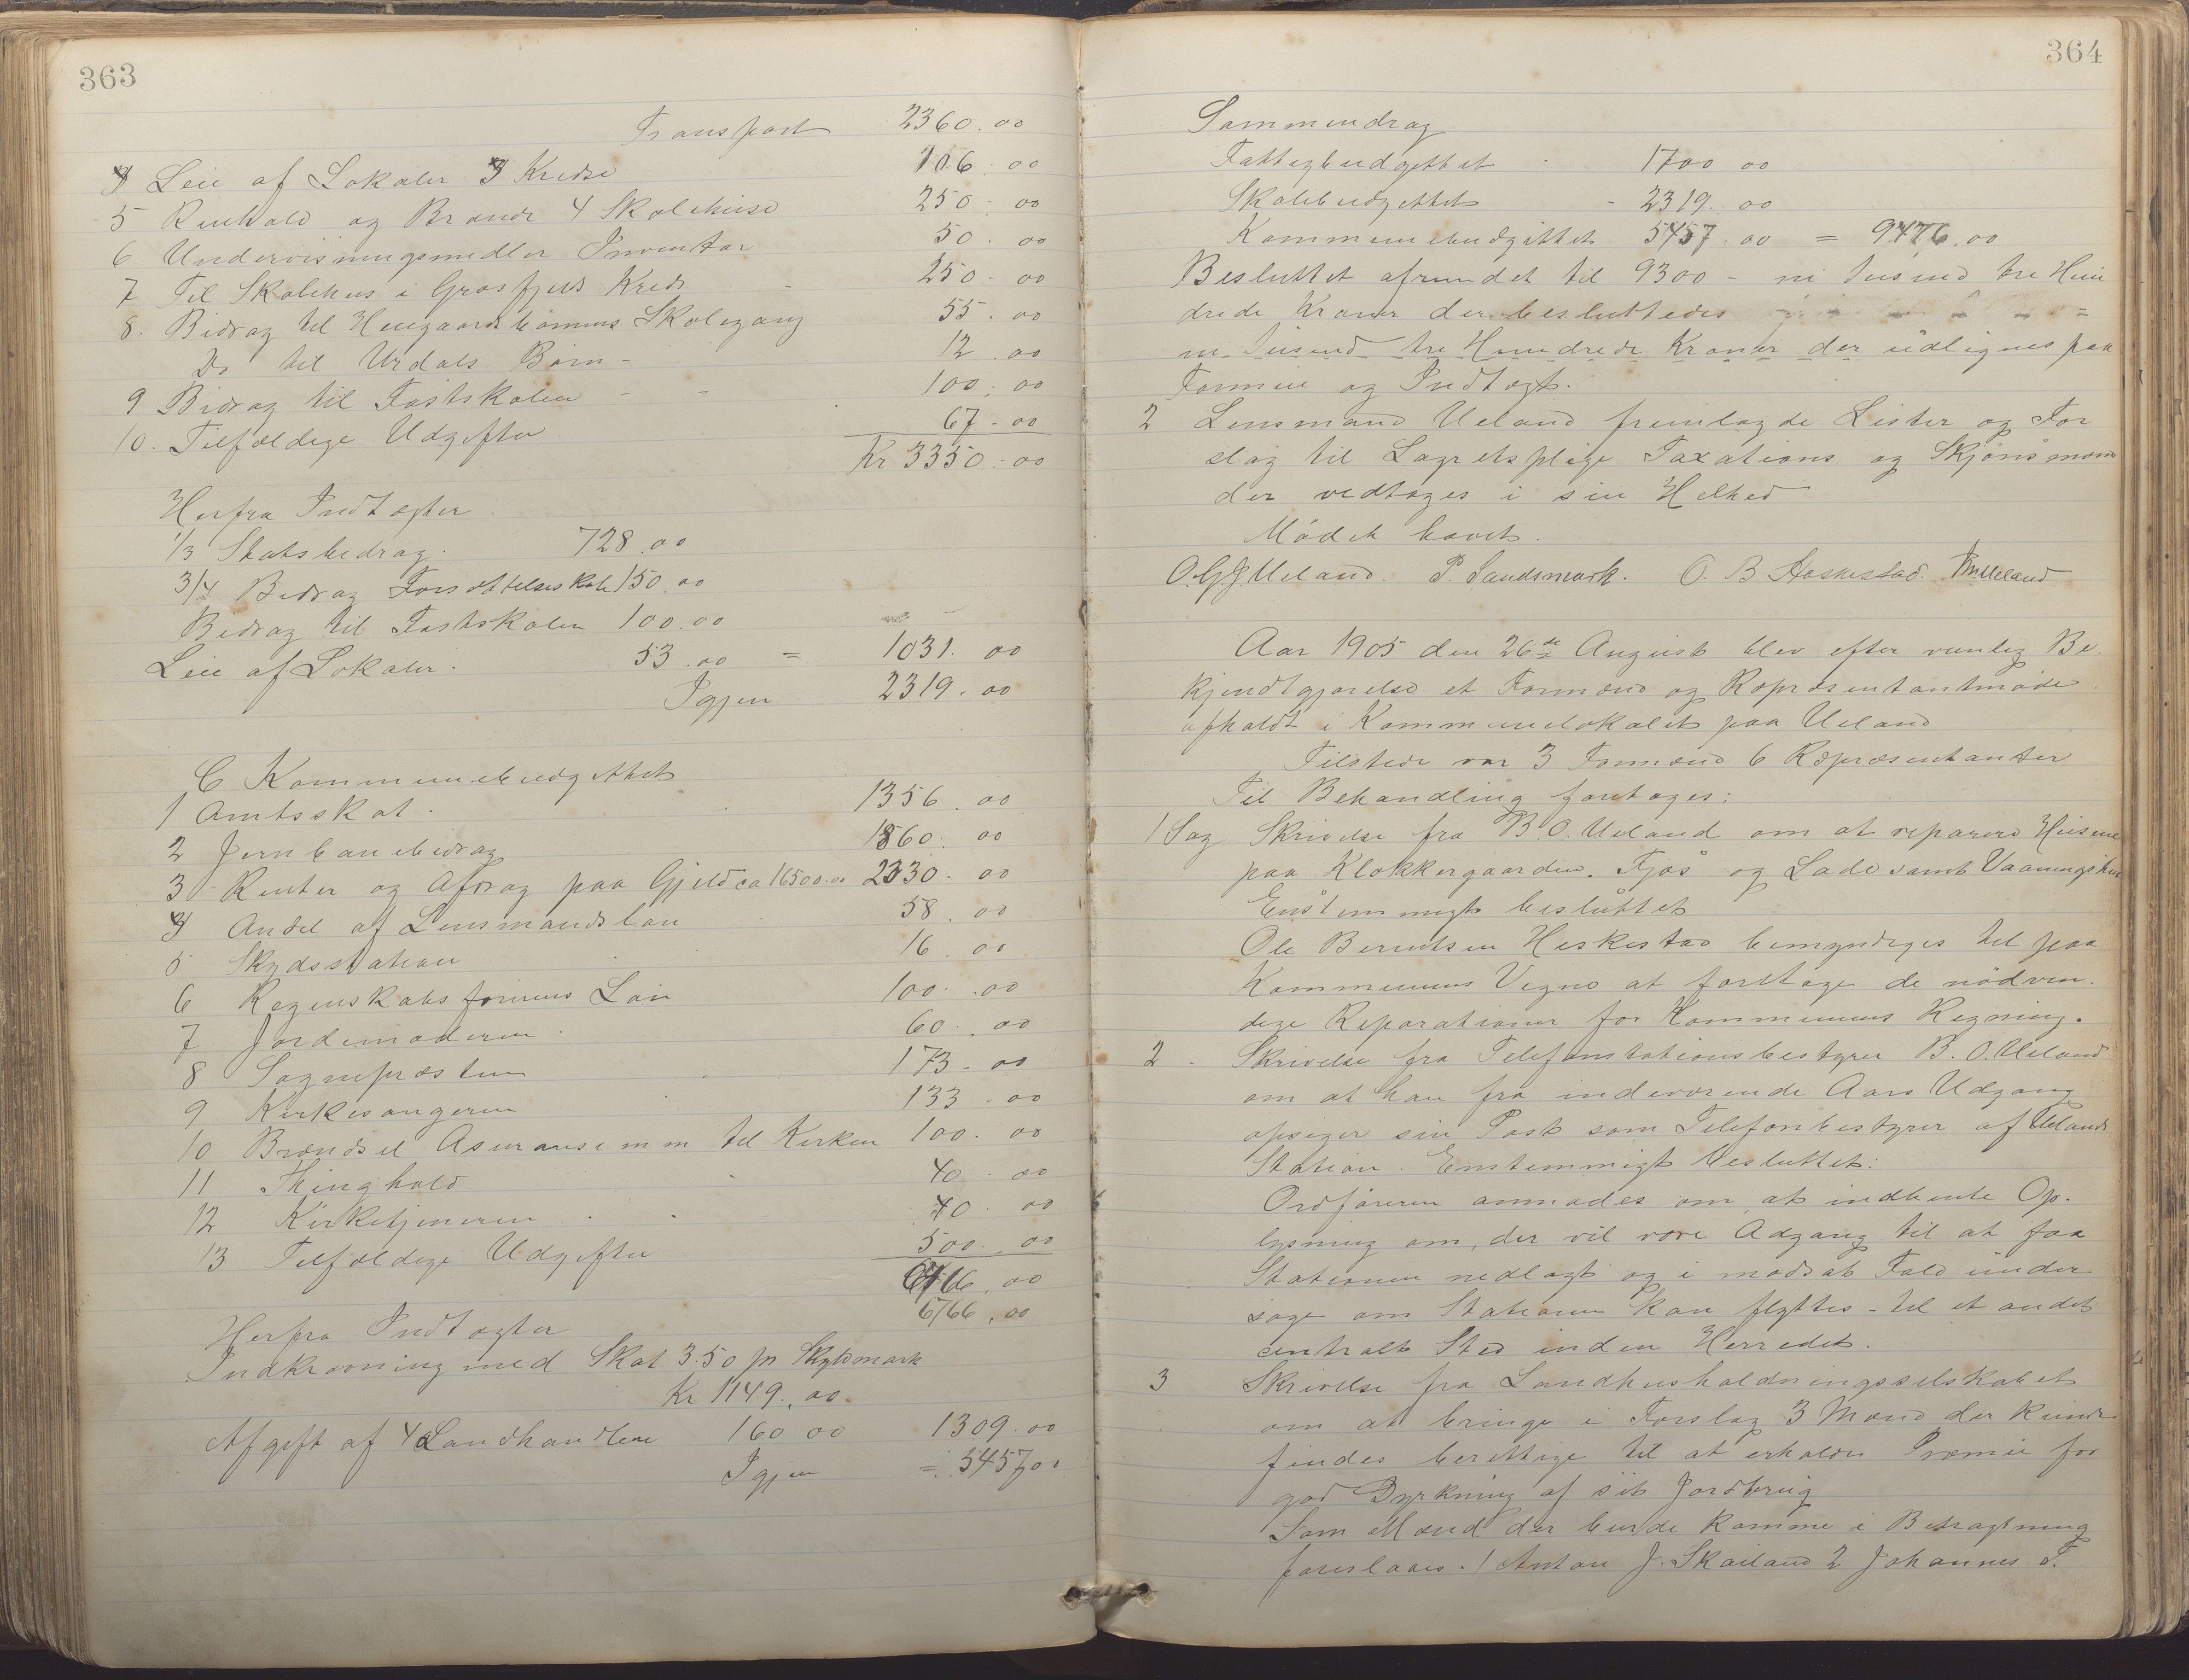 363
Transport 2360.00
4 Leie af Lokaler 3 Kredse 106.00
5 Renhold og Brænde 4 Skolehuse 250.00
6 Undervisningsmedler Inventar 50.00
7 Til Skolehus i Grøsfjeld Kreds - 250-00
8. Bidrag til Heiegaardsbørnens Skolegang 55.00
Do til Urdals Børn - 12.00
9 Bidrag til Fastskolen - - 100.00
10. Tilfældige Udgifter 67-00
Kr 3350.00
Herfra Indtægter
1/3 Statsbedrag. 728.00
3/4 Bedrag Forsættelsesskole 150.00
Bedrag til Fastskolen 100.00
Leie af Lokaler. 53.00 = 1031.00
Igjen 2319.00
C Kommunebudgettet
1 Amtsskat. 1356.00
2 Jernbanebidrag 1860.00
3 Renter og Afdrag paa Gjeld ca 16500.00 2330.00
4 Andel af Lensmandsløn 58.00
5 Skydsstation 16.00
6 Regnskabsførerens Løn 100.00
7 Jordemoderen. 60.00
8 Sognepræsten 173.00
9 Kirkesangeren 133.00
10 Brændsel Asuranse m m til Kirken 100.00
11 Thinghold 40.00
12 Kirketjeneren 40.00
13 Tilfældige Udgifter 500.00
6766.00
Herfra Indtægter 6766.00
Indkrævning med Skat 3.50 pr Skyldmark
Kr 1149.00
Afgift af 4 Landhandlere 160 00 1309.00
Igjen = 5457,00
364
Sammendrag
Fattigbudgettet - 1700 00
Skolebudgettet - 2319.00
Kommunebudgettet 5457.00 = 9476.00
Besluttet afrundet til 9300 - ni tusind tre Hun
drede Kroner der besluttedes
ni Tusend tre Hundrede Kroner der udlignes paa
Formue og Indtægt.
2 Lensmand Ueland fremlagde Lister og For
slag til Lagretspligt Taxations og Skjønsmænd
der vedtages i sin Helhed
Mødet hævet.
O.G.J.Ueland. P. Sandsmark. O. B Heskestad. Ueland
Aar 1905 den 26de August blev efter vanlig Be
kjendtgjørelse et Formænd og Repræsentantmøde
afholdt i Kommunelokalet paa Ueland
Tilstede var 3 Formænd 6 Repræsentanter
Til Behandling foretages:
1 Sag Skrivelse fra B. O. Ueland om at reparere Husene
paa Klokkergaarden. Fjøs og Lade samt Vaaningshus
Enstemmigt besluttet
Ole Berentsen Heskestad bemyndiges til paa
Kommunens Vegne at foretage de nødven.
dige Reparationer for Kommunens Regning.
2. Skrivelse fra Telefonstationsbestyrer B. O. Ueland
om at han fra indeværende Aars Udgang
opsiger sin Post som Telefonbestyrer af Uelands
Station. Enstemmigt besluttet:
Ordføreren anmodes om at indhente Op-
lysning om, der vil være Adgang til at faa
Stationen nedlagt og i modsat Fald under
søge om Stationen kan flyttes - til et andet
centralt Sted inden Herredet.
3 Skrivelse fra Landhusholdningsselskabet
om at bringe i Forslag 3 Mænd der kunde
findes berettige til at erholde Præmie for
god Dyrkning af sit Jordbrug
Som Mænd der burde komme i Betragtning
foreslaaes. 1 Anton J. Skailand 2 Johannes T.